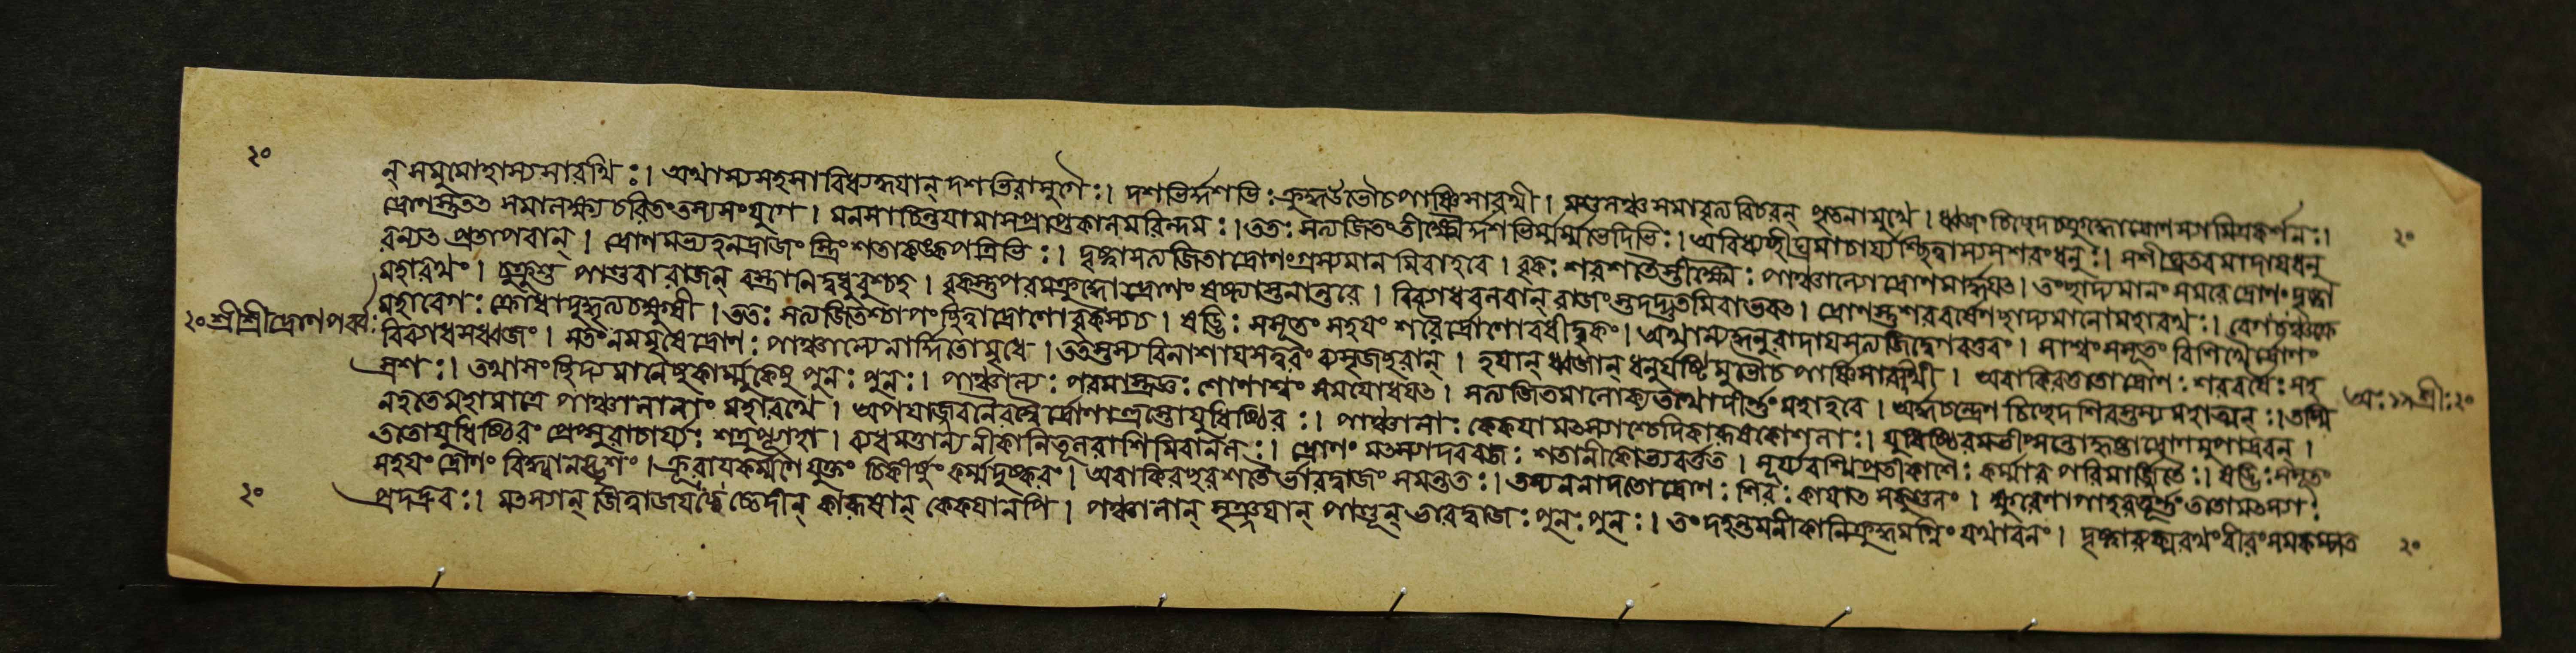 ২০
ন্ সমুমোহাস্য সারথিঃ। অথাস্য সহসাবিধ্যদ্ধয়ান্ দশভিরাশুগৈঃ। দশভির্দ্দশভিঃ ক্রুদ্ধ উভৌ চ পার্ষ্ণিসারথী। মণ্ডলঞ্চ সমাবৃত্য বিচরন্ পৃতনামুখে। ধ্বজং চিচ্ছেদ চ ক্রুদ্ধো দ্রোণস্যামিত্রকর্শনঃ।
দ্রোণস্তুতত সমালক্ষ্য চরিতং তস্য সংযুগে। মনসা চিন্তয়ামাস প্রাপ্তকালমরিন্দমঃ। ততঃ সত্যজিতং তীক্ষ্ণৈর্দ্দশভির্ম্মর্ম্মভেদিভিঃ। অবিধ্যচ্ছীঘ্রমাচার্য্যশ্ছিত্বাস্য সশরং ধনুঃ। স শীঘ্রতরমাদায় ধনু
২০
রন্যত প্রতাপবান্। দ্রোণমভ্যহনদ্রাজং স্ত্রিংশতা কঙ্কপত্রিভিঃ। দৃষ্ট্বা সত্যজিতা দ্রোণং গ্রস্যমানমিবাহবে। বৃকঃ শরশতৈস্তীক্ষ্ণৈঃ পাঞ্চাল্যো দ্রোণমার্দ্দয়ত। তং ছাদ্যমানং সমরে দ্রোণং দৃষ্ট্বা
মহারথং। চুক্রুশু পাণ্ডবা রাজন্ বস্ত্রানি দুধুবুশ্চ হ। বৃকস্তু পরমক্রুদ্ধো দ্রোণং ষষ্ট্যা স্তনান্তরে। বিব্যাধ বলবান্ রাজং স্তদদ্ভুতমিবাভবত। দ্রোণস্তু শরবর্ষেণ ছাদ্যমানো মহারথঃ। বেগং চক্রে
২০ শ্রীশ্রীদ্রোণপর্ব্বঃ
মহাবেগঃ ক্রোধাদুদ্বৃত্য চক্ষুষী। ততঃ সত্যজিতশ্চাপং ছিত্বা দ্রোণো বৃকস্য চ। ষড্ভিঃ সসূতং সহয়ং শরৈর্দ্রোণোবধীদ্বৃকং। অথান্যদ্ধনুরাদায় সত্যজিদ্বেগবত্তরং। সাশ্বং সসূতং বিশিখৈর্দ্রোণং
বিব্যাধ সধ্বজং। স তং ন মমৃষে দ্রোণঃ পাঞ্চাল্যেনার্দ্দিতো মৃধে। ততস্তস্য বিনাশায় সত্বরং ব্যসৃজচ্ছরান্। হয়ান্ ধ্বজান্ ধনুর্মুষ্টিমুভৌ চ পার্ষ্ণিসারথী। অবাকিরত্ততো দ্রোণঃ শরবর্ষৈঃ সহ
স্রশঃ। তথা সংছিদ্যমানেষু কার্ম্মুকেষু পুনঃ পুনঃ। পাঞ্চাল্যঃ পরমাস্ত্রজ্ঞঃ শোণাশ্বং সমযোধয়ত। সত্যজিতমালোক্য তথোদীর্ণং মহাহবে। অর্দ্ধচন্দ্রেণ চিচ্ছেদ শিরস্তস্য মহাত্মনঃ। তস্মি
অঃ ১৯ শ্রীঃ ২০
ন্ হতে মহামাত্রে পাঞ্চালানাং মহারথে। অপায়াজ্জবনৈরশ্বৈর্দ্রোণাত্ত্রস্তো যুধিষ্ঠিরঃ। পাঞ্চালাঃ কেকয়া মৎস্যাশ্চেদিকারূষকোশলাঃ। যুধিষ্ঠিরমভীপ্সন্তো দৃষ্ট্বা দ্রোণমুপাদ্রবন্।
ততো যুধিষ্ঠিরং প্রেপ্সুরাচার্য্যঃ শত্রুপূগহা। ব্যধমত্তান্যনীকানি তূলরাশিমিবানলঃ। দ্রোণং মৎস্যাদবরজঃ শতানীকোভ্যবর্ত্তত। সূর্য্যরশ্মিপ্রতীকাশৈঃ কর্ম্মারপরিমার্জ্জিতৈঃ। ষড্ভিঃ সসূতং
সহয়ং দ্রোণং বিদ্ধ্বানদ্ভৃশং। ক্রূরায় কর্ম্মণে যুক্তং চিকীর্ষুং কর্ম্ম দুষ্করং। অবাকিরচ্ছরশতৈর্ভারদ্বাজং সমন্ততঃ। তস্য ননাদতো দ্রোণঃ শিরঃ কায়াত সকুণ্ডলং। ক্ষুরেণাপাহরত্তূর্ণং ততো মৎস্যাঃ
২০
প্রদুদ্রুবঃ। মৎস্যান্ জিত্বাজয়চ্চৈচ্চেদীন্ কারূষান্ কেকয়ানপি। পঞ্চালান্ সৃঞ্জয়ান্ পাণ্ডূন্ ভারদ্বাজঃ পুনঃ পুনঃ। তং দহন্তমনীকানি ক্রুদ্ধমগ্নিং যথা বনং। দৃষ্ট্বা রুক্মরথং বীরং সমকম্পত
২০